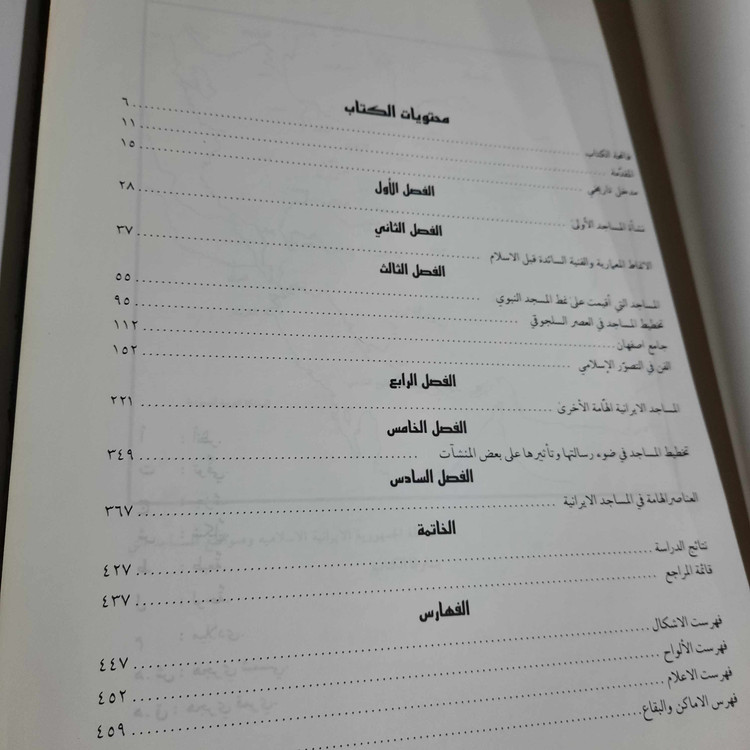 محتويات الكتاب
الكتاب ........ ٦
المقدّمة ........ ١١
مدخل تاريخي ........ ١٥
الفصل الأول
نشأة المساجد الأولى ........ ٢٨
الفصل الثاني
الانماط المعمارية والفنية السائدة قبل الاسلام ........ ٣٧
الفصل الثالث
المساجد التي أقيمت على نمط المسجد النبوي ........ ٥٥
تخطيط المساجد في العصر السلجوقي ........ ٩٥
جامع اصفهان ........ ١١٢
الفن في التصوّر الإسلامي ........ ١٥٢
الفصل الرابع
المساجد الايرانية الهامّة الأخرى ........ ٢٢١
الفصل الخامس
تخطيط المساجد في ضوء رسالتها وتأثيرها على بعض المنشآت ........ ٣٤٩
الفصل السادس
العناصر الهامة في المساجد الايرانية ........ ٣٦٧
الخاتمة
نتائج الدراسة ........ ٤٢٧
قائمة المراجع ........ ٤٣٧
الفهارس
فهرست الاشكال ........ ٤٤٧
فهرست الألواح ........ ٤٥٢
فهرست الاعلام ........ ٤٥٩
فهرس الاماكن والبقاع ........